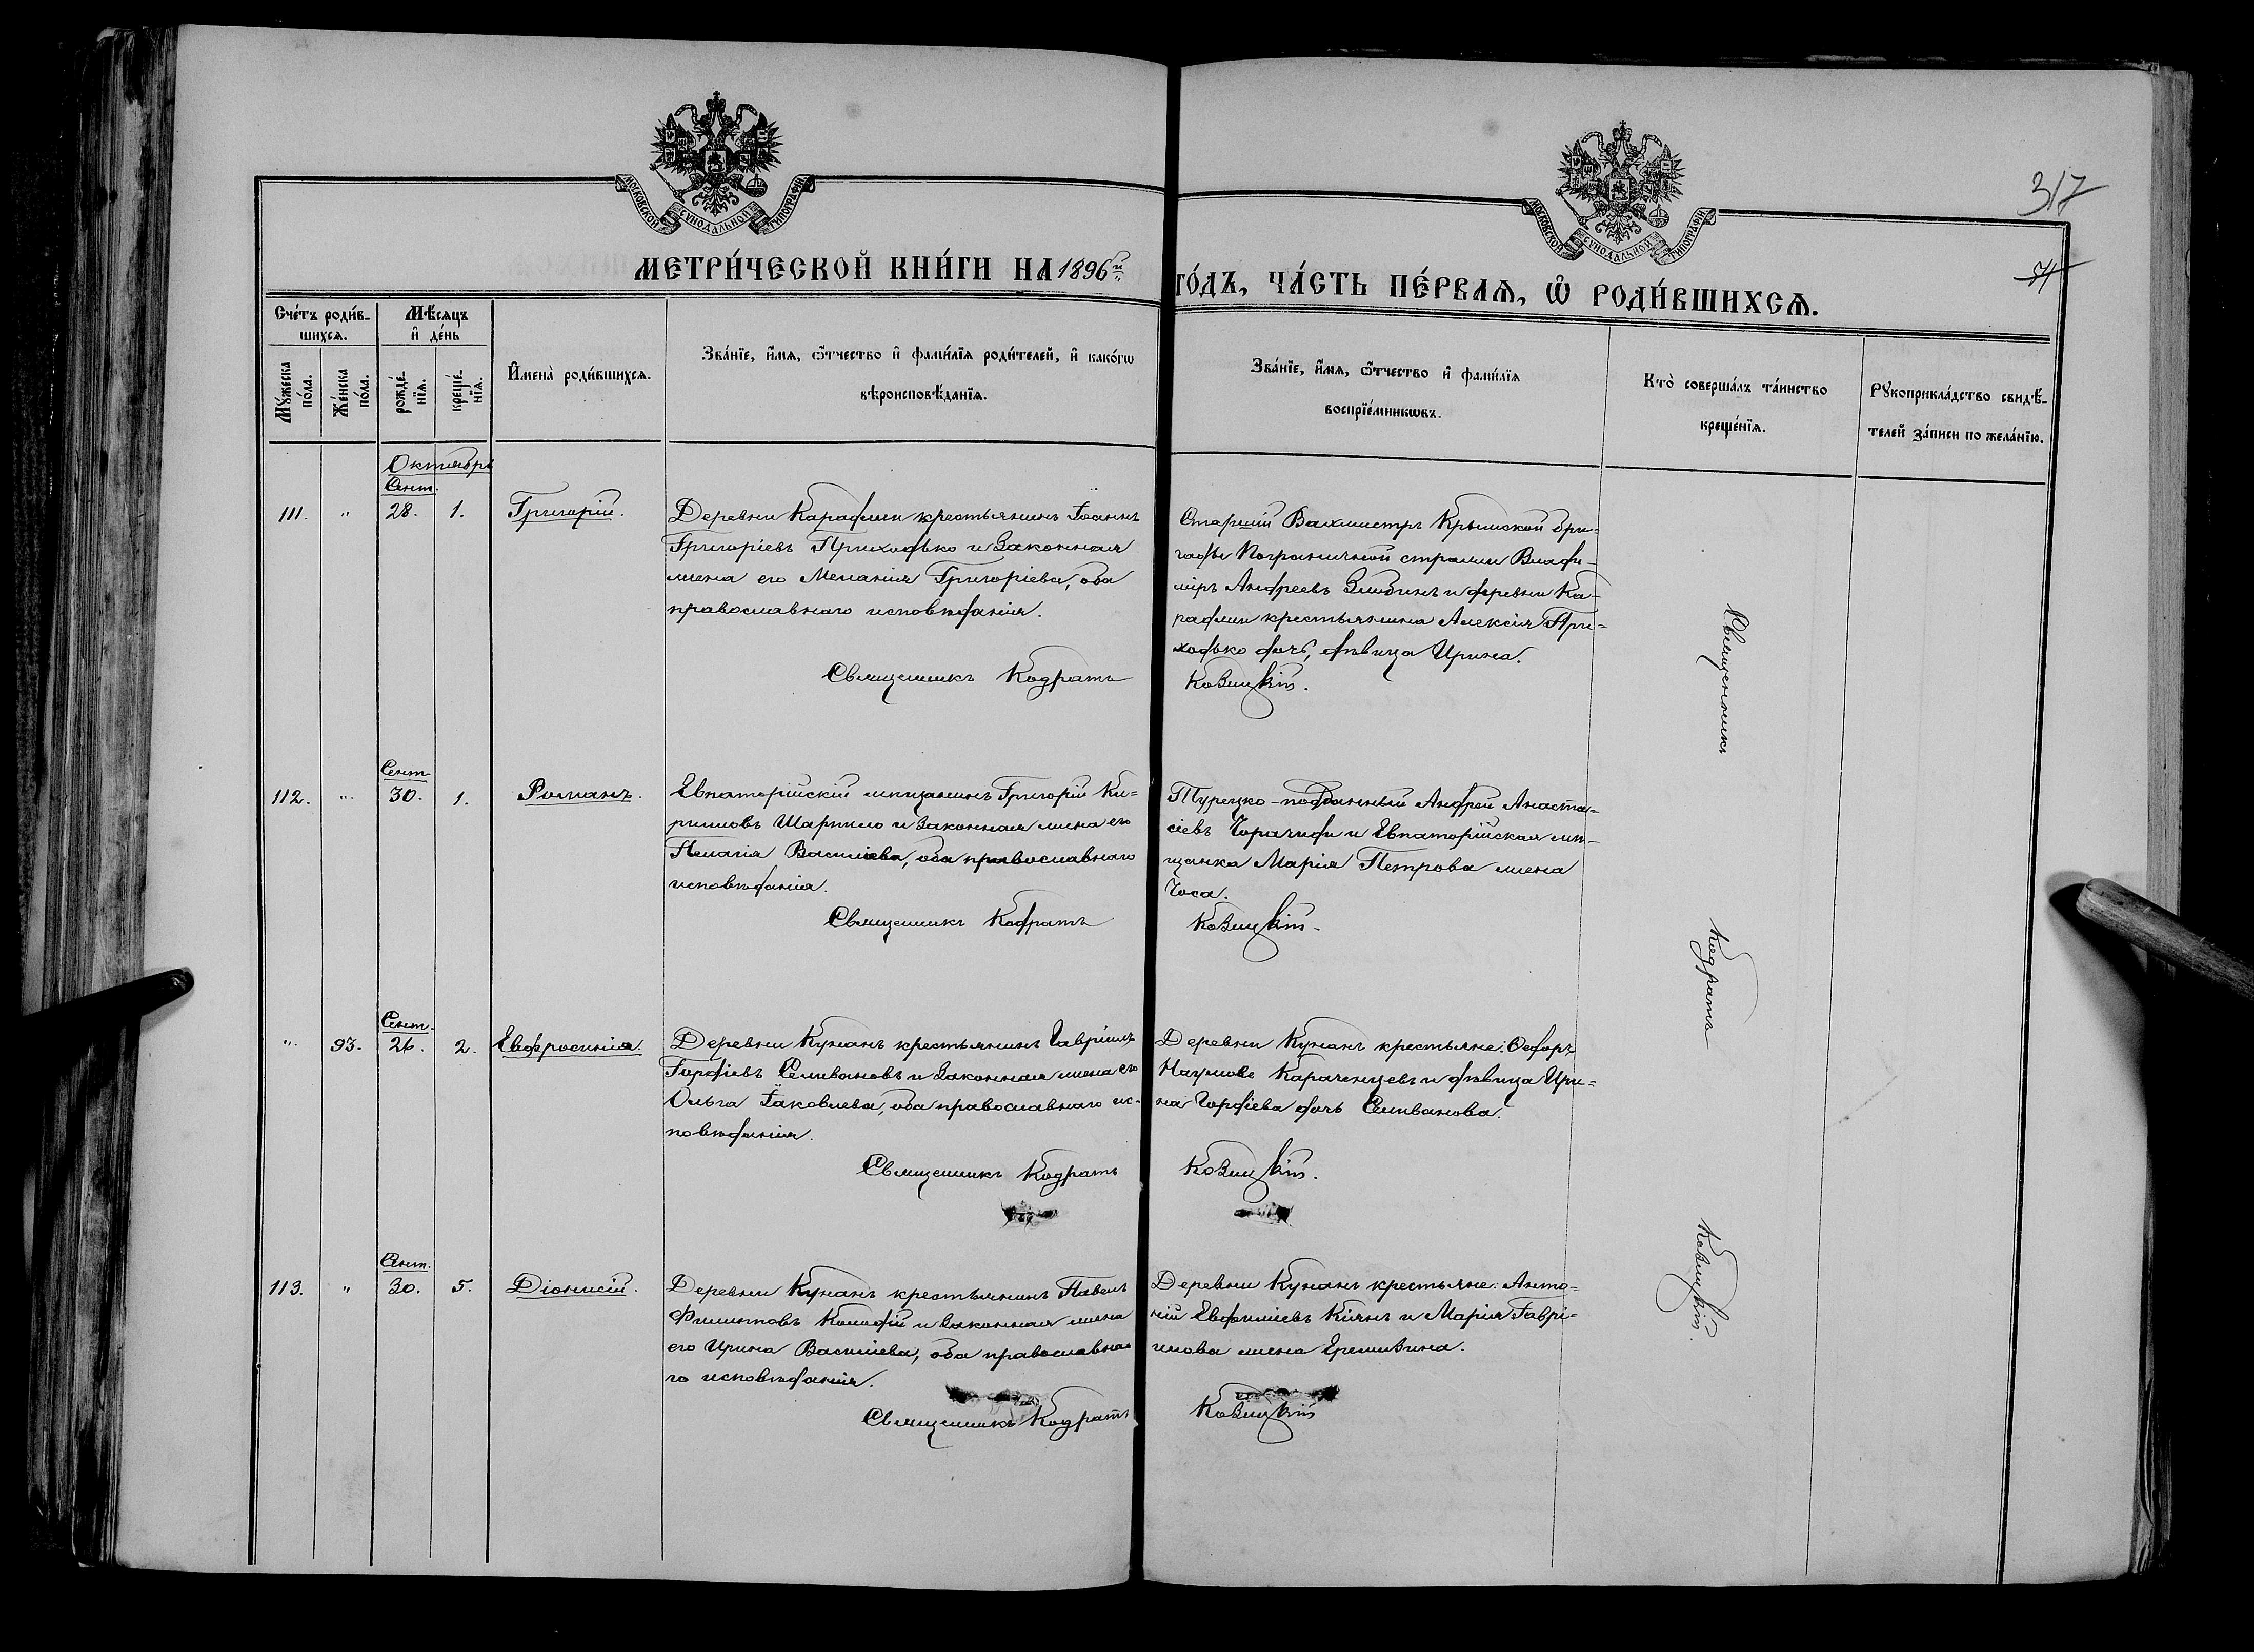 МОСКОВСКОЙ СѴНОДАЛЬНОЙ ТИПОГРАФІИ
МОСКОВСКОЙ СѴНОДАЛЬНОЙ ТИПОГРАФІИ
317
МЕТРИ́ЧЕСКОЙ КНИ́ГИ НА 1896й
ГО́ДЪ, ЧА́СТЬ ПЕ́РВАѦ, Ѡ РОДИ́ВШИХСѦ.
Сче́тъ роди́в-
шихсѧ.
Мѣ́сѧцъ
и де́нь
Мꙋ́жеска
по́ла.
Же́нска
по́ла.
рожде́-
нїѧ.
креще́-
нїѧ.
Имена̀ роди́вшихсѧ.
Зва́нїе, и́мѧ, ѻ́тчество и фами́лїѧ роди́телей, и како́гѡ
вѣроисповѣ́данїѧ.
Зва́нїе, и́мѧ, ѻ́тчество и фами́лїѧ
воспрїе́мникѡвъ.
Кто̀ соверша́лъ та́инство
креще́нїѧ.
Рꙋкоприкла́дство свидѣ́-
телей за́писи по жела́нїю.
Октябрь
Сент.
111. " 28. 1. Григорій.
Деревни Караджи крестьянинъ Іоаннъ
Григоріевъ Приходько и законная
жена его Меланія Григоріева, оба
православнаго исповѣданія.
Священникъ Кодратъ
Старшій Вахмистръ Крымской бри-
гады Пограничной стражи Влади-
міръ Андреевъ Злобинъ и деревни Ка-
раджи крестьянина Алексія При-
ходько дочь, дѣвица Ирина.
Козицкій.
Сент.
112. " 30. 1. Романъ.
Евпаторійскій мѣщанинъ Григорій Ки-
рилловъ Шарпило и законная жена его
Пелагія Василіева, оба православнаго
исповѣданія.
Священникъ Кодратъ
Турецко-подданный Андрей Анаста-
сіевъ и Евпаторійская мѣ-
щанка Марія Петрова жена
Козицкій.
Сент.
" 93. 26. 2. Евфросинія.
Деревни Кунанъ крестьянинъ Гавріилъ
Гордіевъ Селивановъ и законная жена его
Ольга Іаковлева, оба православнаго ис-
повѣданія.
Священникъ Кодратъ
Деревни Кунанъ крестьяне: Ѳедоръ
Наумовъ Караченцевъ и дѣвица Ири-
на Гордіева дочь Селиванова.
Козицкій.
Сент.
113. " 30. 5. Діонисій.
Деревни Кунанъ крестьянинъ Павелъ
Филипповъ Колодій и законная жена
его Ирина Василіева, оба православна-
го исповѣданія.
Священникъ Кодратъ
Деревни Кунанъ крестьяне: Анто-
ній Евфиміевъ Кіянъ и Марія Гаврі-
илова жена
Козицкій
Священникъ
Кодратъ
Козицкій.